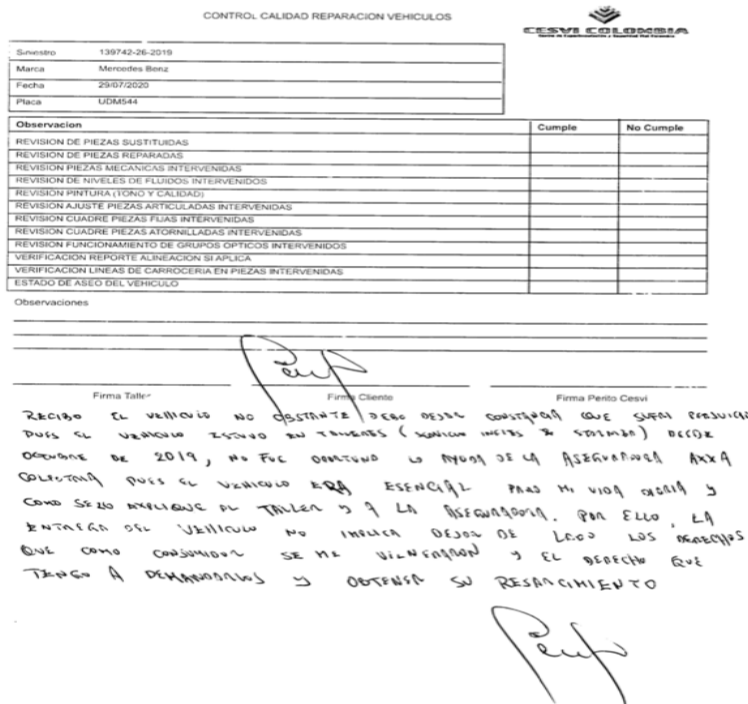 CONTROL CALIDAD REPARACION VEHICULOS
CESVI COLOMBIA
Siniestro 139742-26-2019
Marca Mercedes Benz
Fecha 29/07/2020
Placa UDM544
Observacion Cumple No Cumple
REVISION DE PIEZAS SUSTITUIDAS
REVISION DE PIEZAS REPARADAS
REVISION PIEZAS MECANICAS INTERVENIDAS
REVISION DE NIVELES DE FLUIDOS INTERVENIDOS
REVISION PINTURA (TONO Y CALIDAD)
REVISION AJUSTE PIEZAS ARTICULADAS INTERVENIDAS
REVISION CUADRE PIEZAS FIJAS INTERVENIDAS
REVISION CUADRE PIEZAS ATORNILLADAS INTERVENIDAS
REVISION FUNCIONAMIENTO DE GRUPOS OPTICOS INTERVENIDOS
VERIFICACION REPORTE ALINEACION SI APLICA
VERIFICACION LINEAS DE CARROCERIA EN PIEZAS INTERVENIDAS
ESTADO DE ASEO DEL VEHICULO
Observaciones
Firma Taller Firma Cliente Firma Perito Cesvi
RECIBO EL VEHICULO NO OBSTANTE DEBO DEJAR CONSTANCIA QUE SUFRI PERJUICIO
PUES EL VEHICULO ESTUVO EN TALLERES ( DESDE
OCTUBRE DE 2019, NO FUE OPORTUNO LA AYUDA DE LA ASEGURADORA AXXA
COLPATRIA PUES EL VEHICULO ERA ESENCIAL PARA MI VIDA DIARIA Y
COMO SE LO EXPLIQUE AL TALLER Y A LA ASEGURADORA. POR ELLO, LA
ENTREGA DEL VEHICULO NO IMPLICA DEJAR DE LADO LOS DERECHOS
QUE COMO CONSUMIDOR SE ME VULNERARON Y EL DERECHO QUE
TENGO A DEMANDARLOS Y OBTENER SU RESARCIMIENTO